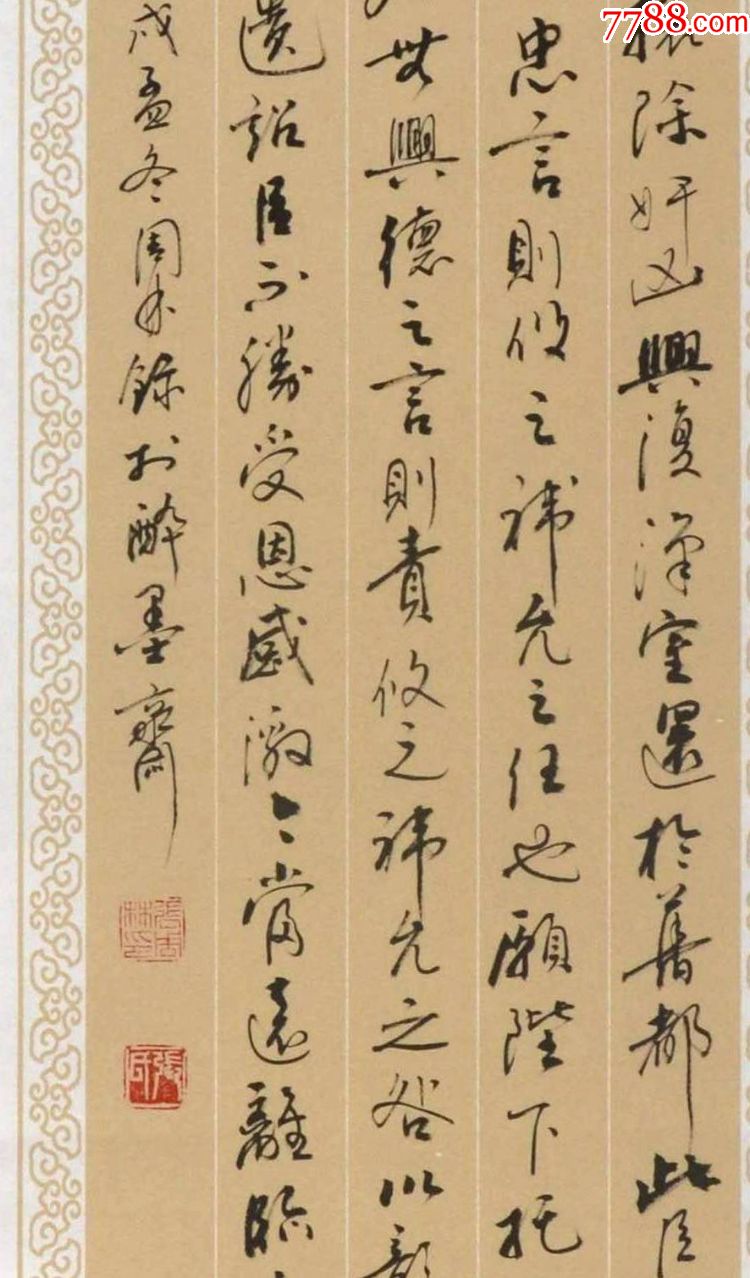 7788.com
攘除奸凶興復漢室還於舊都此臣
忠言則攸之禕允之任也願陛下托
無興德之言則責攸之禕允之咎以彰
遺詔臣不勝受恩感激今當遠離臨
戌孟冬周林錄於醉墨齋
張周林印